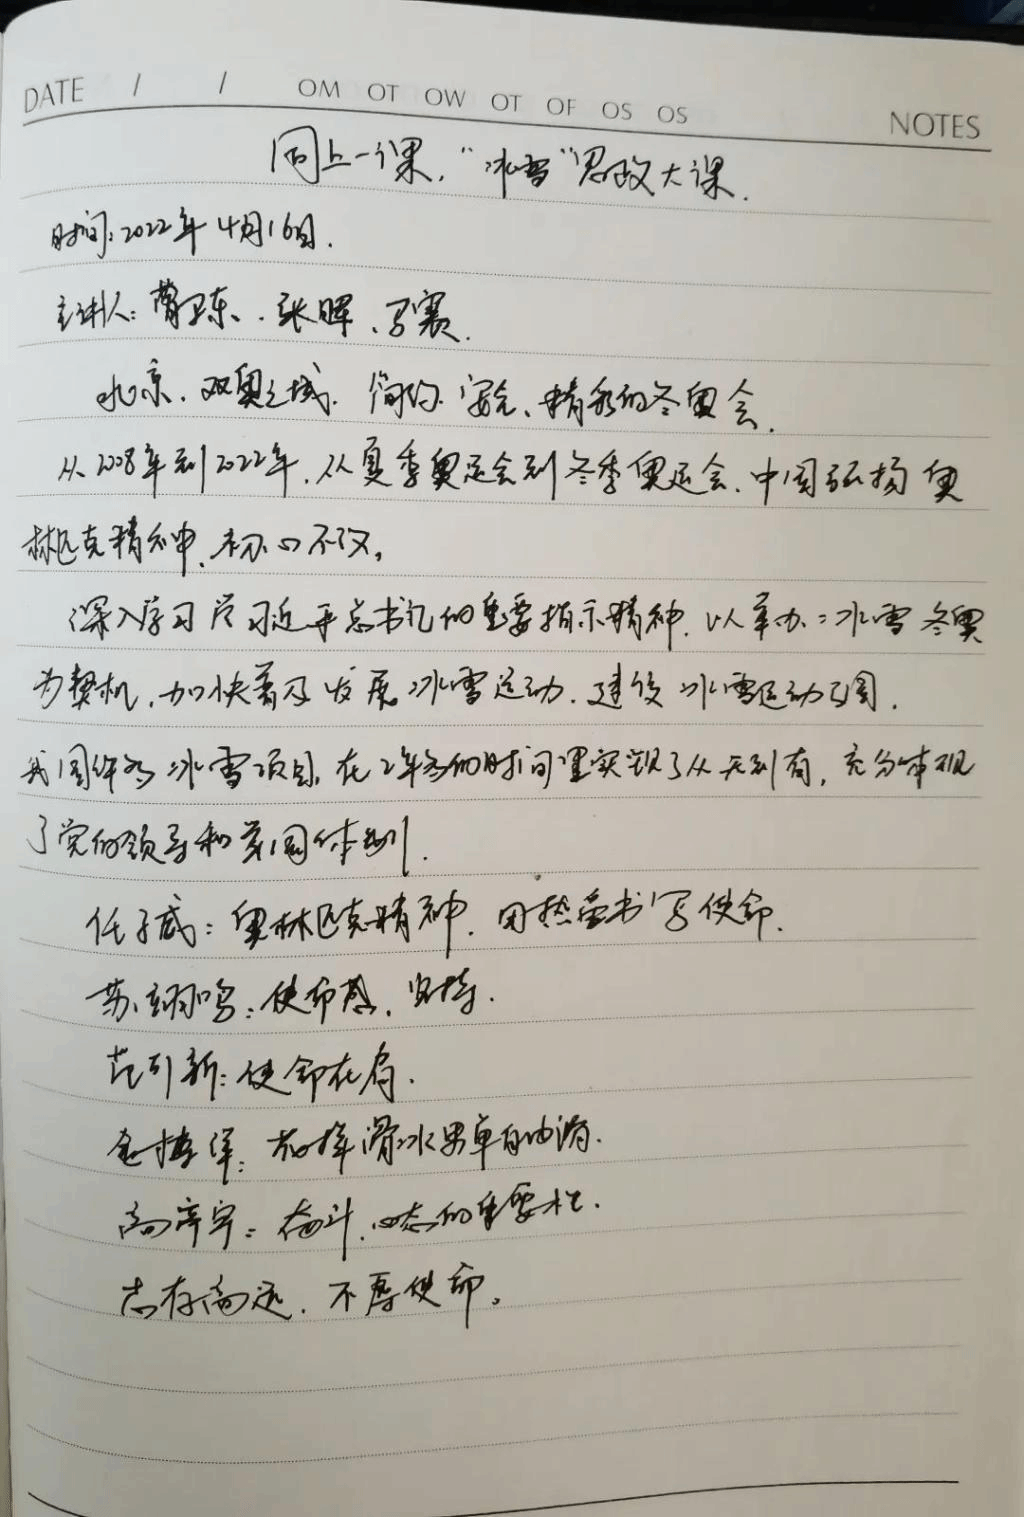 DATE / / OM OT OW OT OF OS OS NOTES
同上一课，“冰雪”思政大课.
时间：2022年4月16日.
主讲人：曹卫东、张晖、
北京、双奥之城. 简约、安全、精彩的冬奥会.
从2008年到2022年，从夏季奥运会到冬季奥运会，中国弘扬奥
林匹克精神，初心不改。
深入学习 习近平总书记的重要指示精神，以举办冰雪冬奥
为契机，加快普及发展冰雪运动，建设冰雪运动强国.
我国许多冰雪项目，在2年多的时间里实现了从无到有，充分体现
了党的领导和举国体制.
任子威：奥林匹克精神，用热爱书写使命.
苏翊鸣：使命感，坚持.
范可新：使命在肩.
金博洋：花样滑冰男单自由滑.
高亭宇：奋斗，心态的重要性.
志存高远，不辱使命。